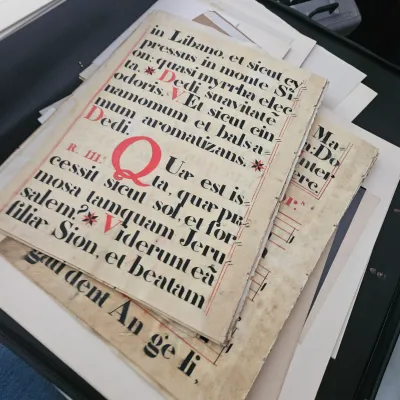 in Libano, et sicut cy
pressus in monte Si
on: quasi myrrha elec
ta * Dedi suavitatē
odoris. V. Et sicut cin
namomum, et balsa-
mum aromatizans. *
Dedi.
R. III.
Quæ est is
ta, quæ pro
cessit sicut sol, et for
mosa tamquam Jeru
salem? * Viderunt eā
filiæ Sion, et beatam
Ma
Da
gaudent Angeli,